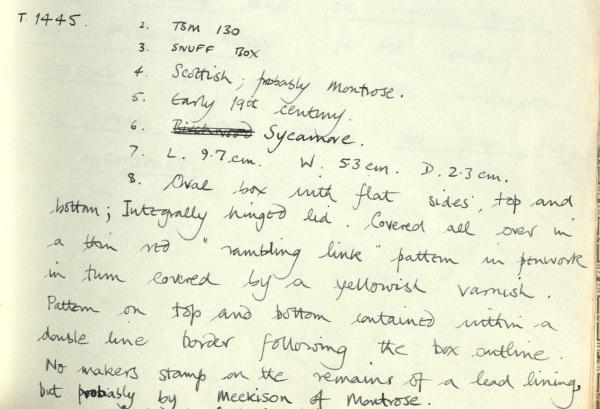 T. 1445.
2. TSM 130
3. SNUFF BOX
4. Scottish; probably Montrose.
5. Early 19th century.
6. Birchwood Sycamore.
7. L. 9.7cm. W. 5.3cm. D. 2.3cm.
8. Oval box with flat sides, top and
bottom; Integrally hinged lid. Covered all over in
a thin red "rambling link" pattern in penwork
in turn covered by a yellowish varnish.
Pattern on top and bottom contained within a
double line border following the box outline.
No makers stamp on the remains of a lead lining,
but probably by Meekison of Montrose.